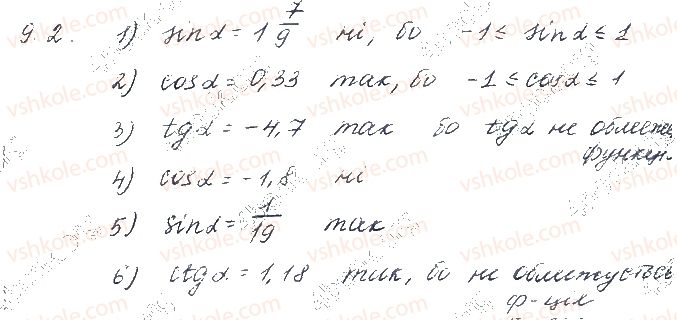 9.2. 1) sinα = 1 7/9 ні, бо -1 ≤ sinα ≤ 1
2) cosα = 0,33 так, бо -1 ≤ cosα ≤ 1
3) tgα = -4,7 так бо tgα не обмеже
функц.
4) cosα = -1,8 ні
5) sinα = 1/19 так
6) ctgα = 1,18 так, бо не обмежується
ф-ція